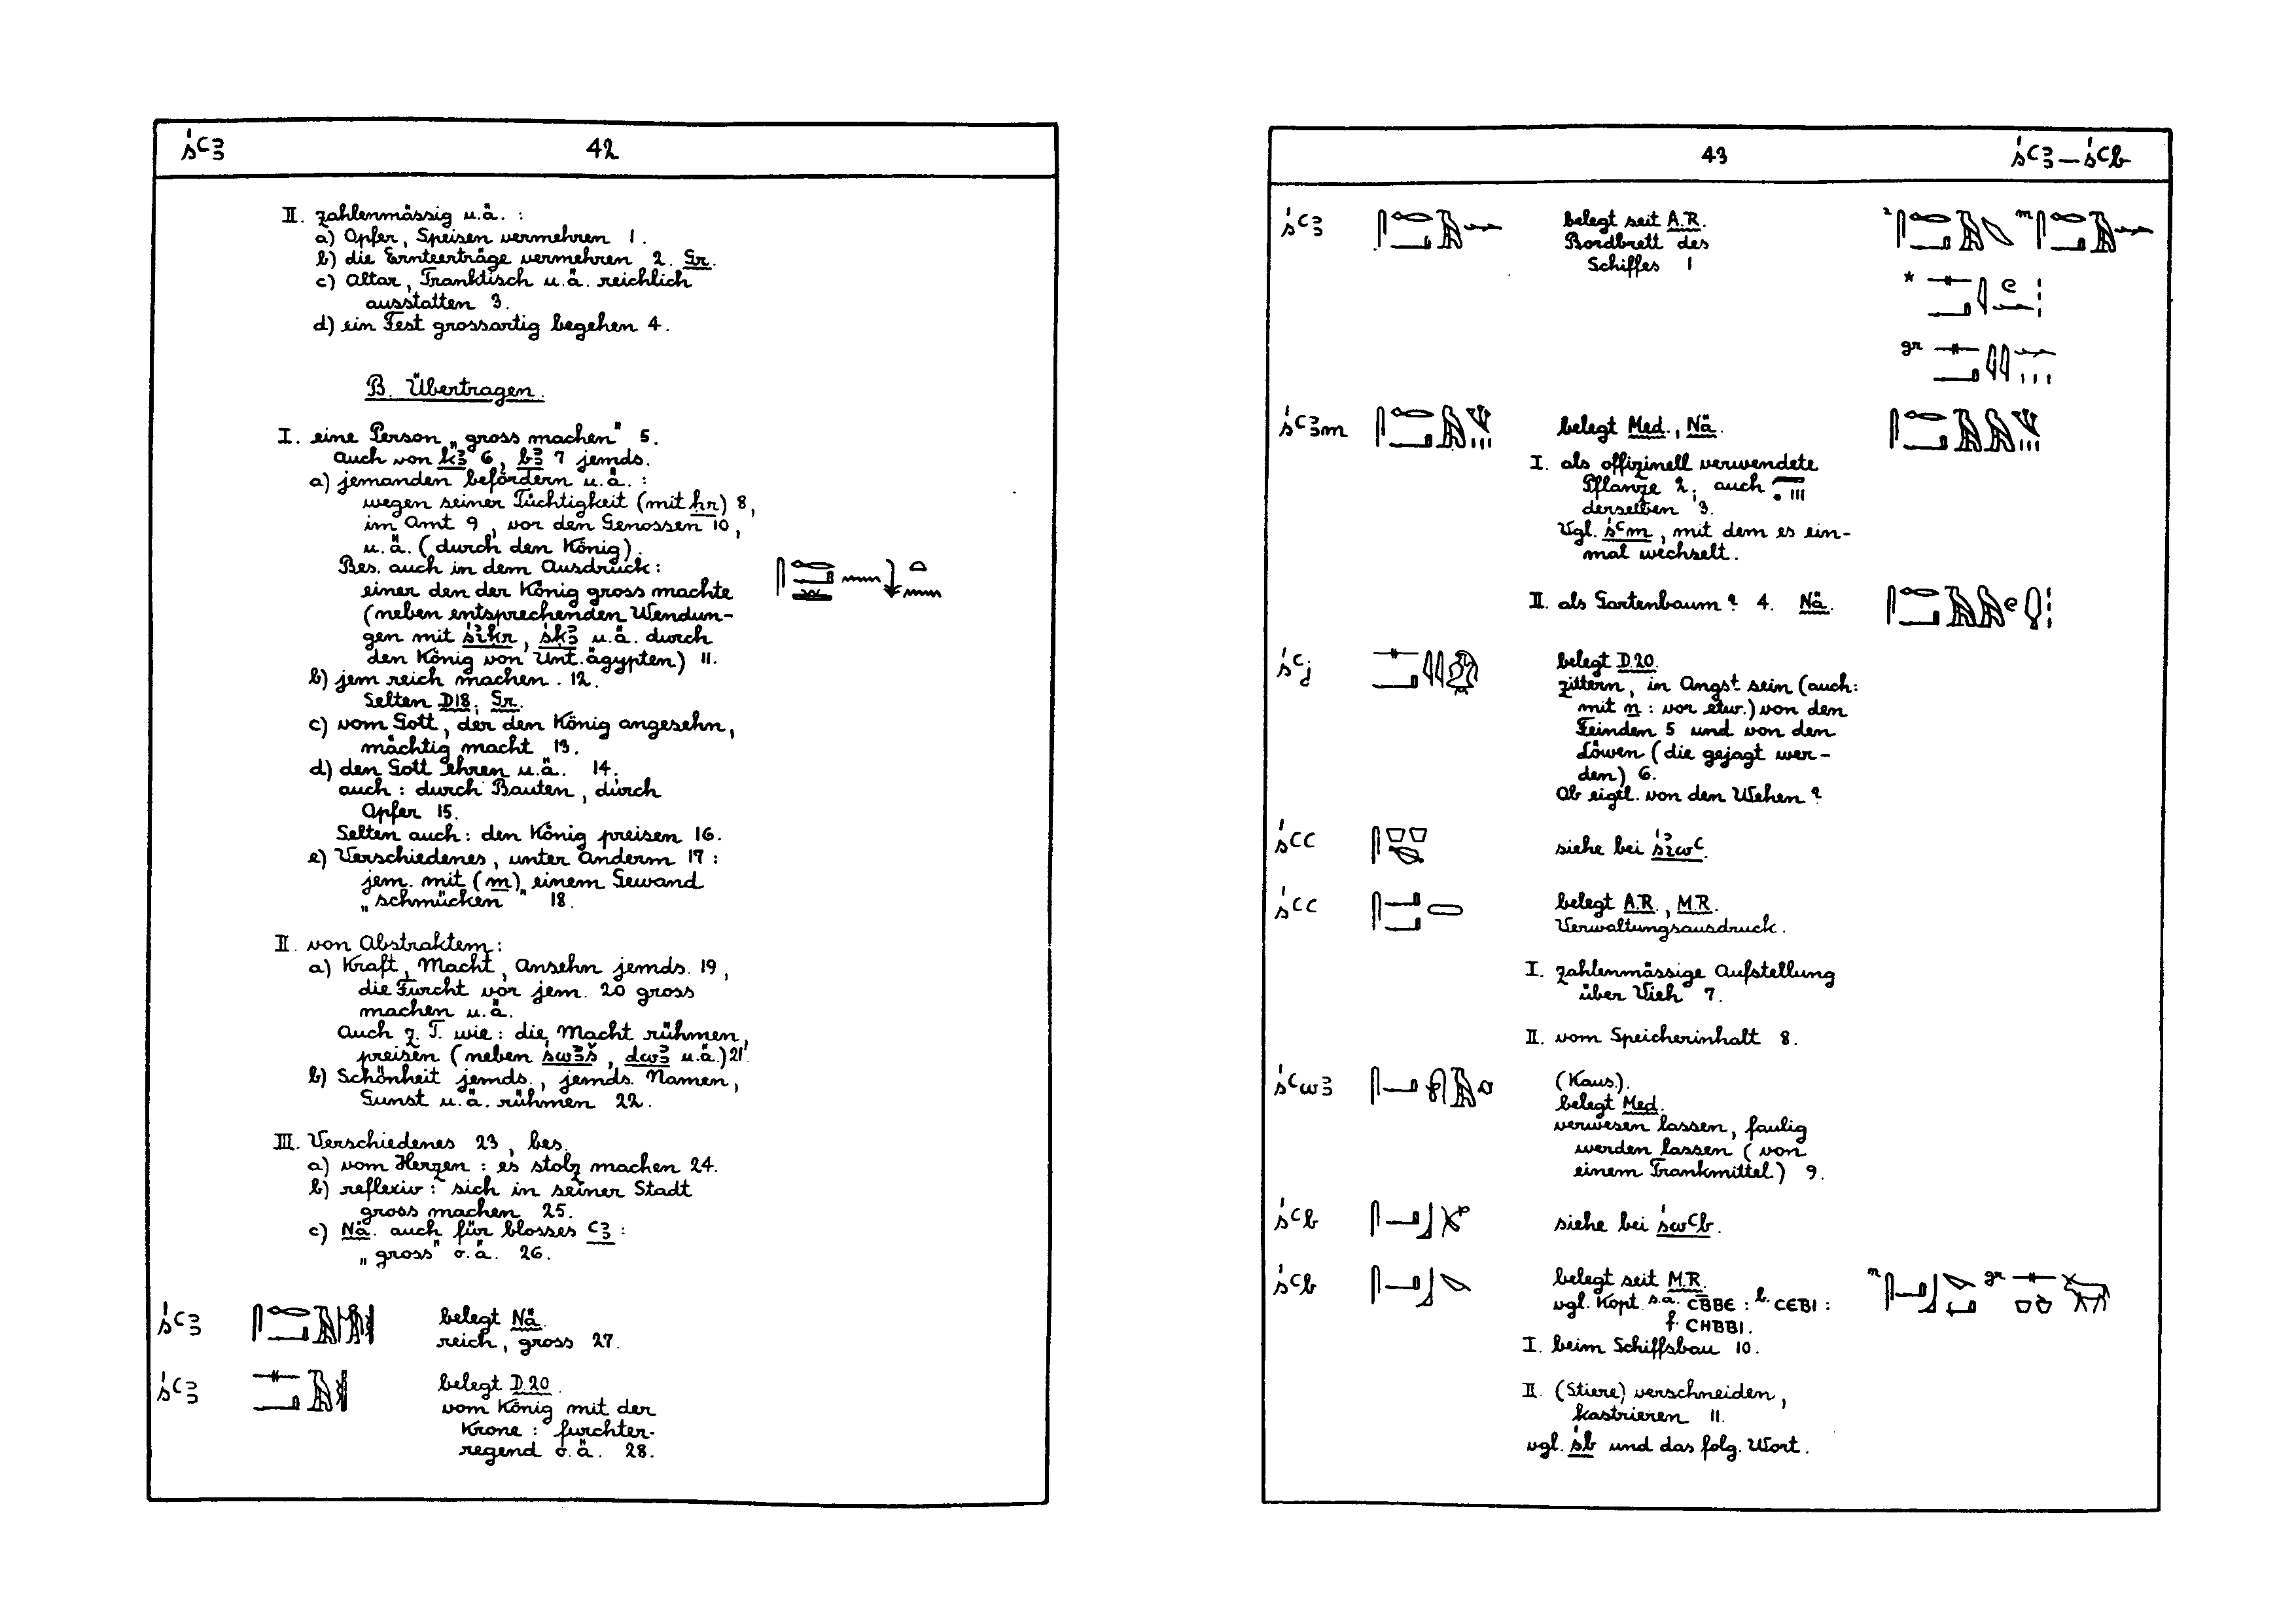 śꜥꜣ 42
II. zahlenmässig u.ä. :
a) Opfer, Speisen vermehren 1.
b) die Ernteerträge vermehren 2. Gr.
c) Altar, Tranktisch u.ä. reichlich
ausstatten 3.
d) ein Fest grossartig begehen 4.
B. Übertragen.
I. eine Person „gross machen" 5.
Auch von kꜣ 6, bꜣ 7 jemds.
a) jemanden befördern u.ä. :
wegen seiner Tüchtigkeit (mit ḥr) 8,
im Amt 9, vor den Genossen 10,
u.ä. (durch den König).
Bes. auch in dem Ausdruck:
einer den der König gross machte
(neben entsprechenden Wendun-
gen mit śı҆ḳr, śḳꜣ u.ä. durch
den König von Unt.ägypten) 11.
b) jem reich machen. 12.
Selten D18, Gr.
c) vom Gott, der den König angesehn,
mächtig macht 13.
d) den Gott ehren u.ä. 14.
auch : durch Bauten, durch
Opfer 15.
Selten auch : den König preisen 16.
e) Verschiedenes, unter Anderm 17 :
jem. mit (m) einem Gewand
„schmücken" 18.
II. von Abstraktem :
a) Kraft, Macht, Ansehn jemds. 19,
die Furcht vor jem. 20 gross
machen u.ä.
Auch z. T. wie : die Macht rühmen,
preisen (neben śwꜣš, dwꜣ u.ä.) 21.
b) Schönheit jemds., jemds. Namen,
Gunst u.ä. rühmen 22.
III. Verschiedenes 23, bes.
a) vom Herzen : es stolz machen 24.
b) reflexiv : sich in seiner Stadt
gross machen 25.
c) Nä. auch für blosses ꜥꜣ :
„gross" o.ä. 26.
śꜥꜣ belegt Nä.
reich, gross 27.
śꜥ​ꜣ belegt D.20.
vom König mit der
Krone : furchter-
regend o.ä. 28.
43 śꜥꜣ – śꜥb
śꜥꜣ belegt seit A.R.
Bordbrett des
Schiffes 1
gr
śꜥ​ꜣm belegt Med., Nä.
I. als offizinell verwendete
Pflanze 2; auch
derselben 3.
Vgl. śꜥm, mit dem es ein-
mal wechselt.
II. als Gartenbaum? 4. Nä.
śꜥj belegt D.20.
zittern, in Angst sein (auch:
mit n : vor etw.) von den
Feinden 5 und von den
Löwen (die gejagt wer-
den) 6.
Ob eigtl. von den Wehen?
śꜥꜥ siehe bei śı҆wꜥ.
śꜥꜥ belegt A.R., M.R.
Verwaltungsausdruck.
I. zahlenmässige Aufstellung
über Vieh 7.
II. vom Speicherinhalt 8.
śꜥwꜣ (Kaus.).
belegt Med.
verwesen lassen, faulig
werden lassen (von
einem Trankmittel) 9.
śꜥb siehe bei śwꜥb.
śꜥb belegt seit M.R. gr
vgl. Kopt. s.a. ⲤⲂ̅ⲂⲈ : b. ⲤⲈⲂⲒ :
f. ⲤⲎⲂⲂⲒ.
I. beim Schiffsbau 10.
II. (Stiere) verschneiden,
kastrieren 11.
vgl. śb und das folg. Wort.